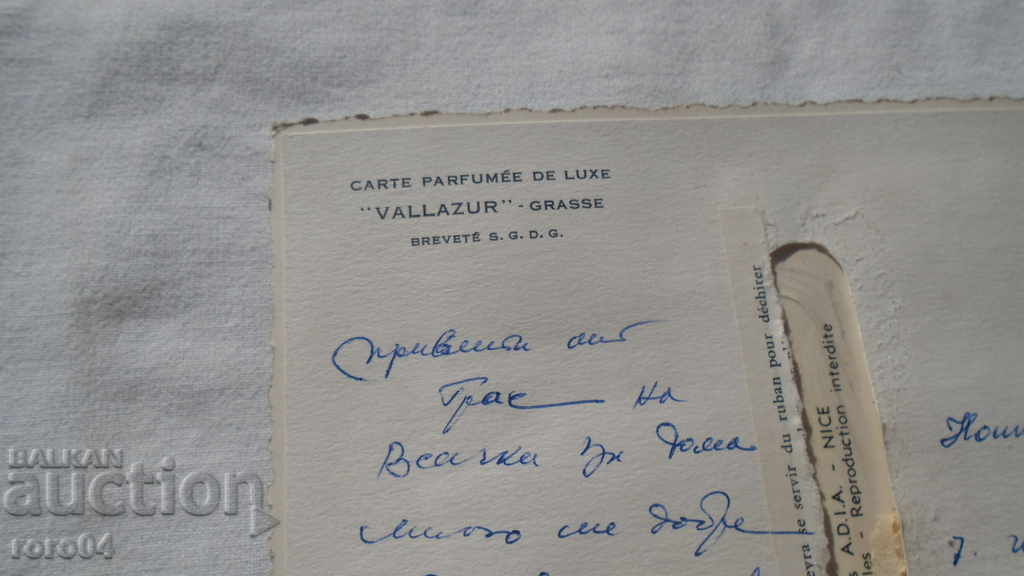 CARTE PARFUMÉE DE LUXE
"VALLAZUR" - GRASSE
BREVETÉ S. G. D. G.
привети от
Грас на
Всички
дома
много ме добре
se servir du ruban pour déchirer
A.D.I.A. - NICE
- Reproduction interdite
BALKAN
auction
roro04